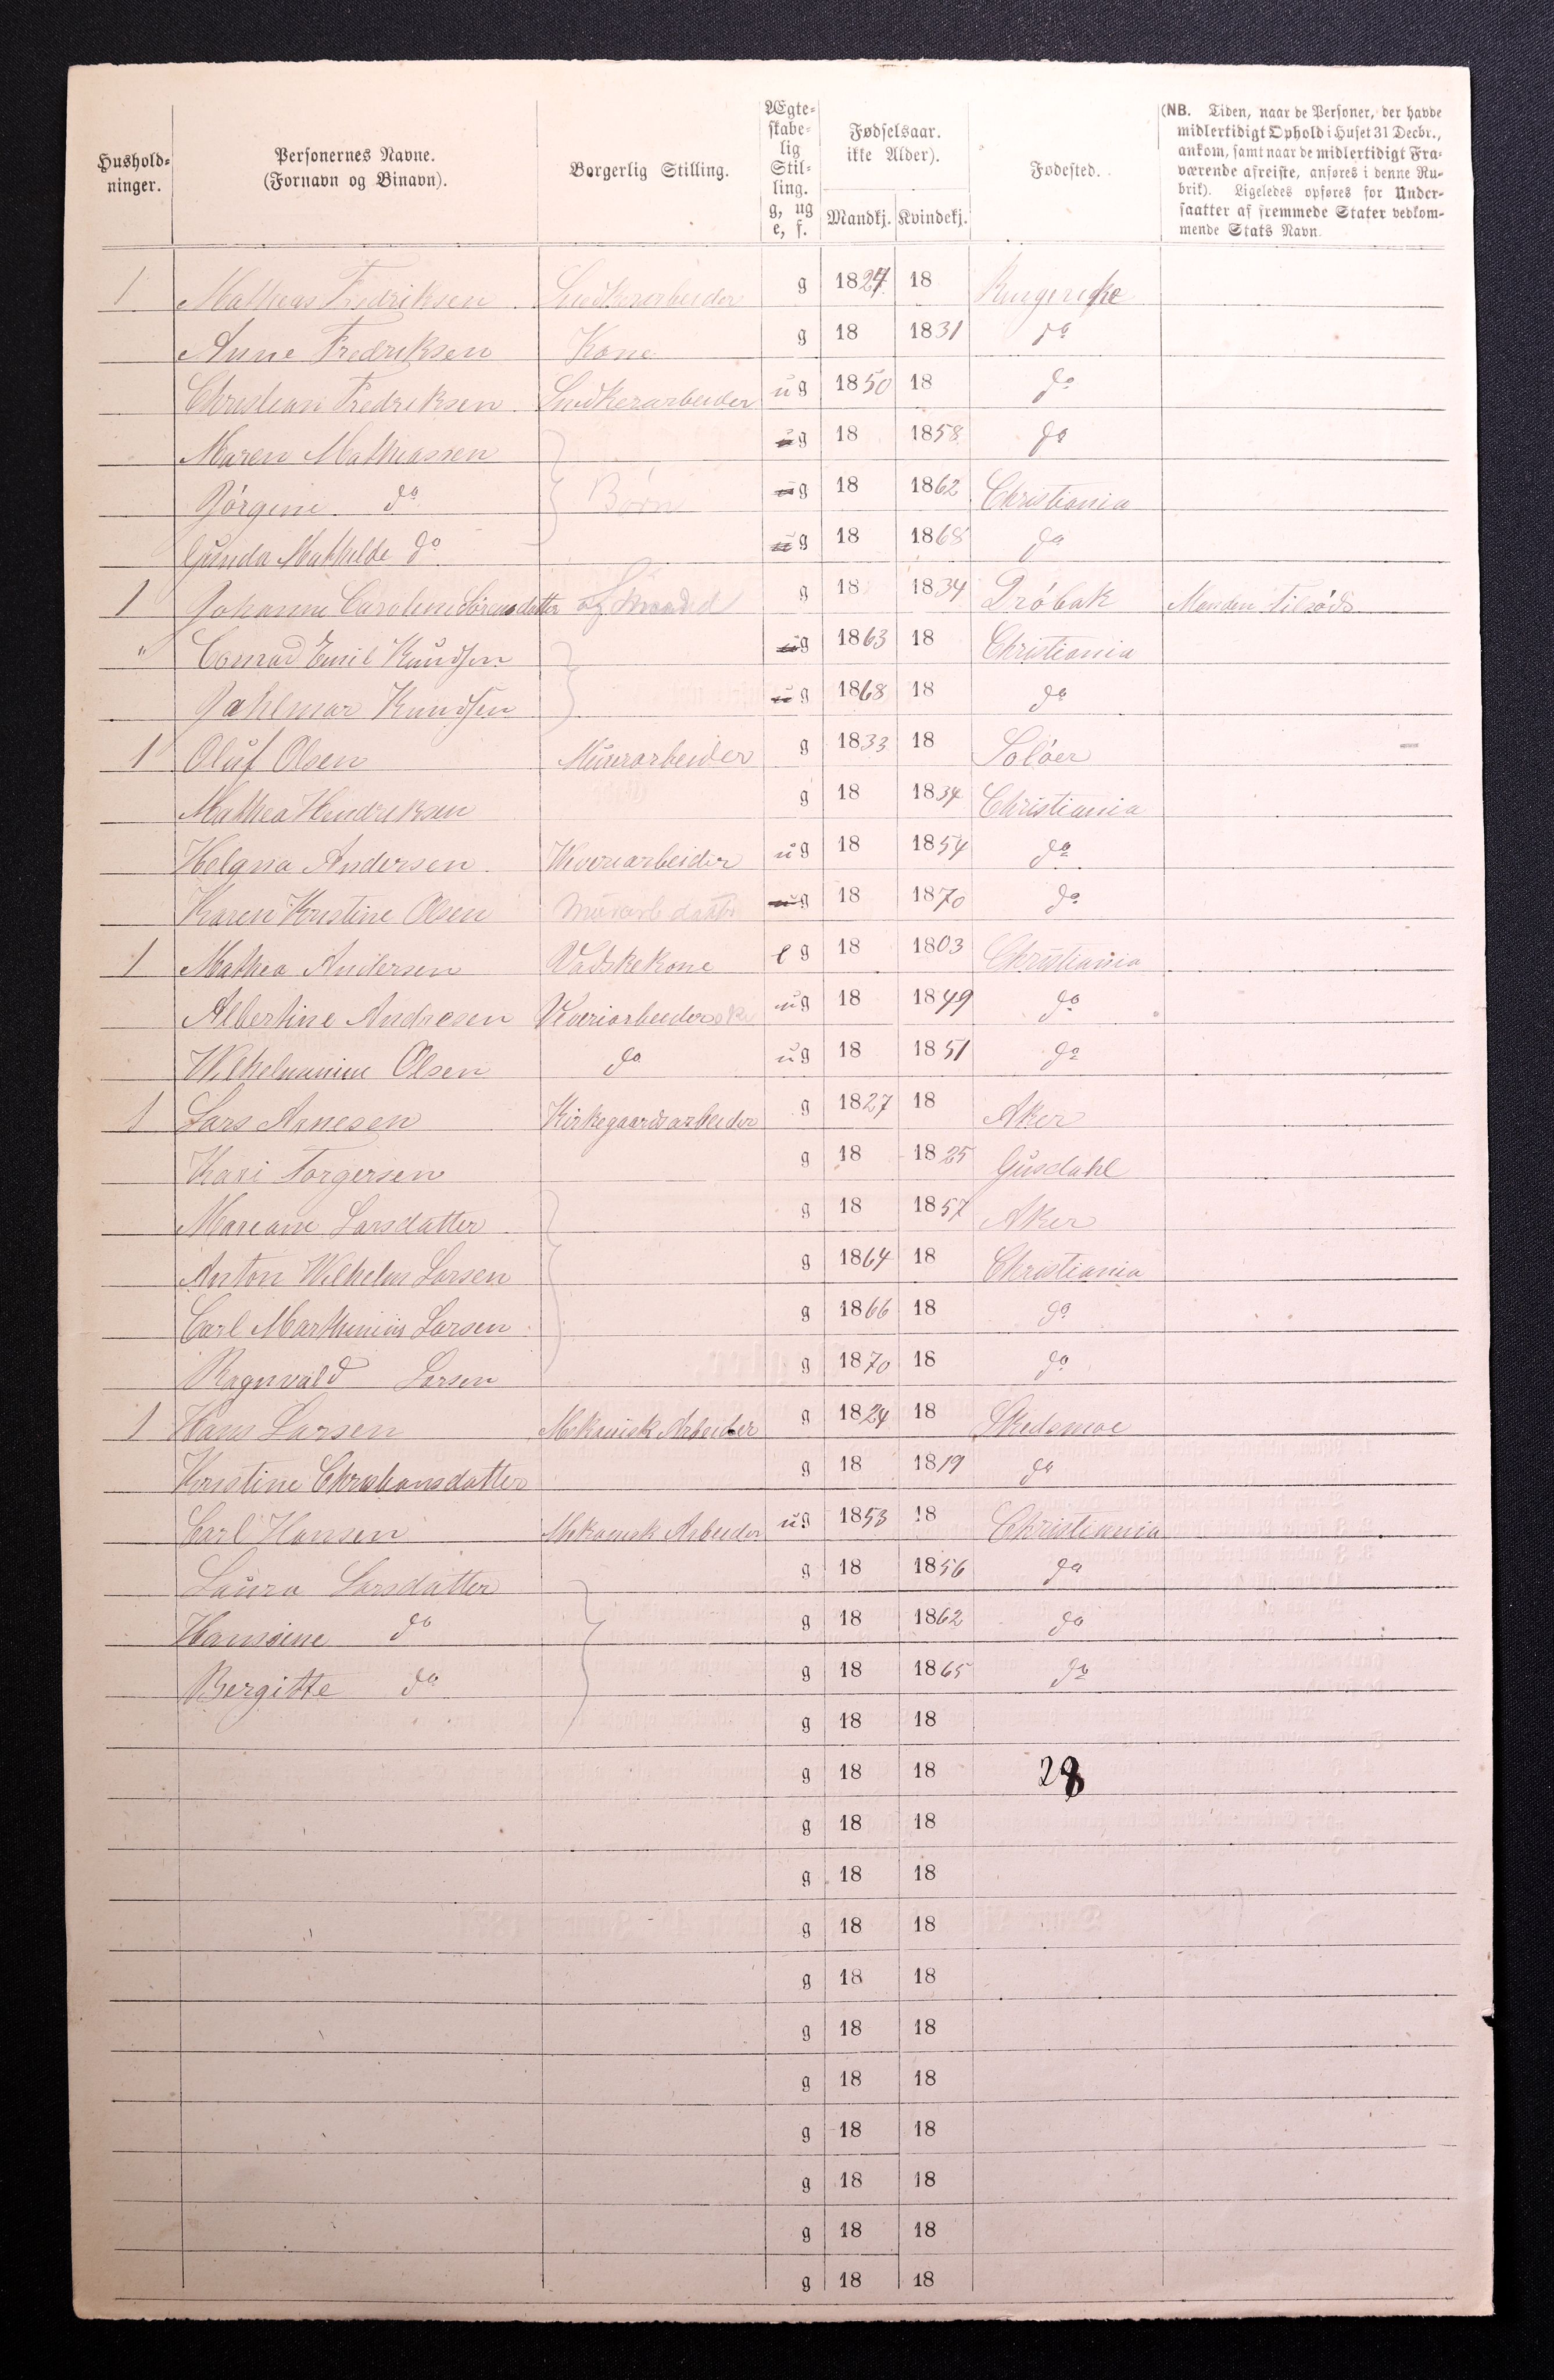 Hushold-
ninger.
Personernes Navne.
(Fornavn og Binavn).
Borgerlig Stilling.
Ægte-
skabe-
lig
Stil-
ling.
g, ug
e, f.
Fødselsaar.
ikke Alder).
Mandkj. Kvindekj.
Fødested.
(NB. Tiden, naar de Personer, der havde
midlertidigt Ophold i Huset 31 Decbr.,
ankom, samt naar de midlertidigt Fra-
værende afreiste, anføres i denne Ru-
brik). Ligeledes opføres for Under-
saatter af fremmede Stater vedkom-
mende Stats Navn.
1 Mathias Fredriksen Snedkerarbeider g 1827 18 Ringerike
Anne Fredriksen Kone g 18 1831 do
Christian Fredriksen Snedkerarbeider ug 1850 18 do
Maren Mathiassen ug 18 1858 do
Jörgine do Börn ug 18 1862 Christiania
Gunda Mathilde do ug 18 1868 do
1 Johanne Caroline Sörensdatter g 18 1834 Dröbak Manden tilsöds
" Conrad Emil Knudsen ug 1863 18 Christiania
Jahlmar Knudsen ug 1868 18 do
1 Oluf Olsen Murarbeider g 1833 18 Solöer
Mathea Hendriksen g 18 1834 Christiania
Helgna Andersen Væveriarbeider ug 18 1854 do
Karen Kristine Olsen Murarb datter ug 18 1870 do
1 Mathea Andersen Vadskekone e g 18 1803 Christiania
Albertine Andresen Væveriarbeiderske ug 18 1849 do
Wilhelmine Olsen do ug 18 1851 do
1 Lars Arnesen Kirkegaardsarbeider g 1827 18 Aker
Kari Torgersen g 18 1825 Gusdahl
Mariane Larsdatter g 18 1857 Aker
Anton Wilhelm Larsen g 1864 18 Christiania
Carl Marthinius Larsen g 1866 18 do
Ragnvald Larsen g 1870 18 do
1 Hans Larsen Mekanisk Arbeider g 1824 18 Skedsmoe
Kristine Christiansdatter g 18 1819 do
Carl Hansen Mekanisk Arbeider ug 1853 18 Christiania
Laura Larsdatter g 18 1856 do
Hansine do g 18 1862 do
Bergitte do g 18 1865 do
g 18 18
g 18 18 28
g 18 18
g 18 18
g 18 18
g 18 18
g 18 18
g 18 18
g 18 18
g 18 18
g 18 18
g 18 18